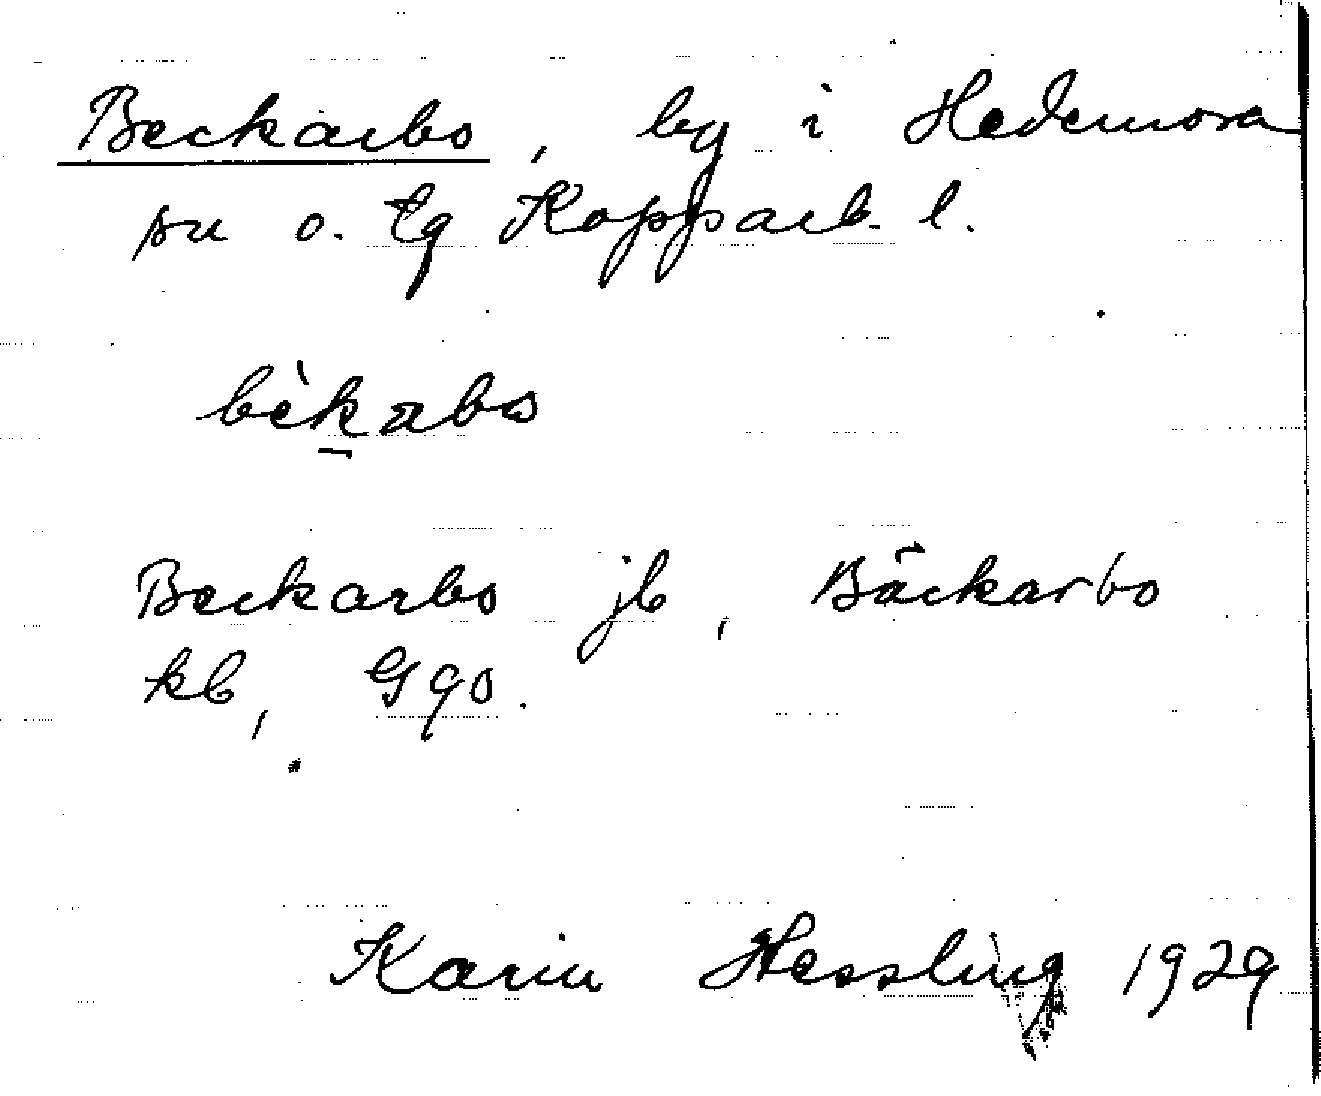 Beckarbo, by i Hedemora
sn o. tg Kopparb. l.
bèkabo
Beckarbo jb, Bäckarbo
kb, Gqo.
Karin Hessling 1929